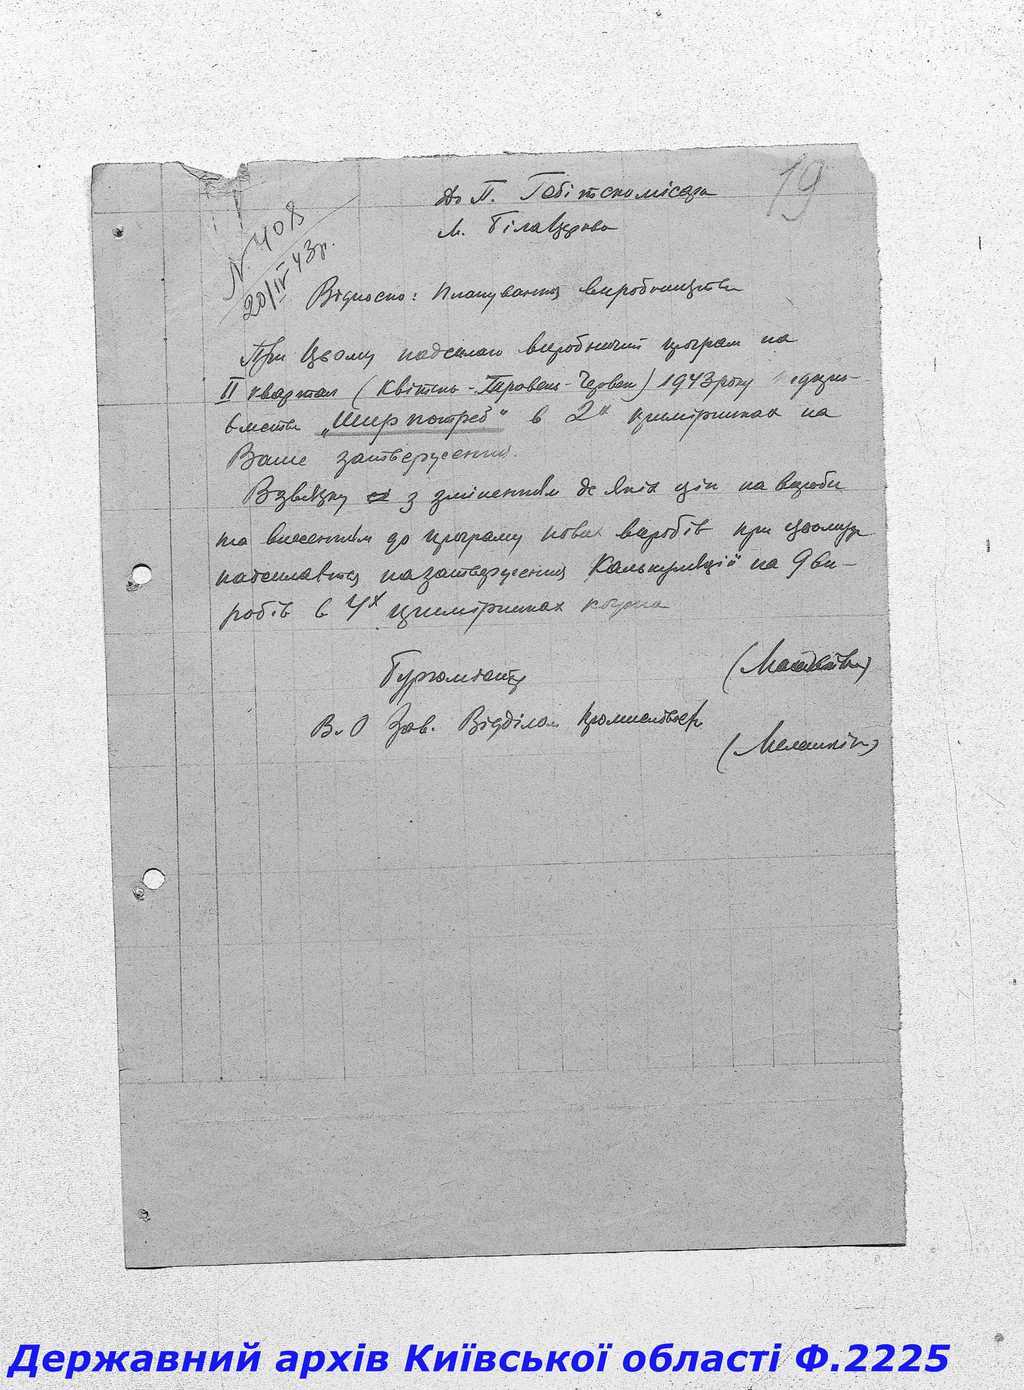 19
До П. Гебітскомісара
м. Біла Церква
N. 408
20/IV 43р.
Відносно: Планування виробництва
При цьому надсилаю виробничий програм на
II квартал (Квітень-Травень-Червень) 1943 року
"Ширпотреб" в 2х примірниках на
Ваше затвердження.
Взвязку з зміненням де яких цін на вироби
та внесенням до програму нових виробів при цьому
надсилається на затвердження Калькуляції на 9 ви-
робів в 4х примірниках кожна
Бургомістр
В.О Зав. Відділом промисловости
Державний архів Київської області Ф.2225